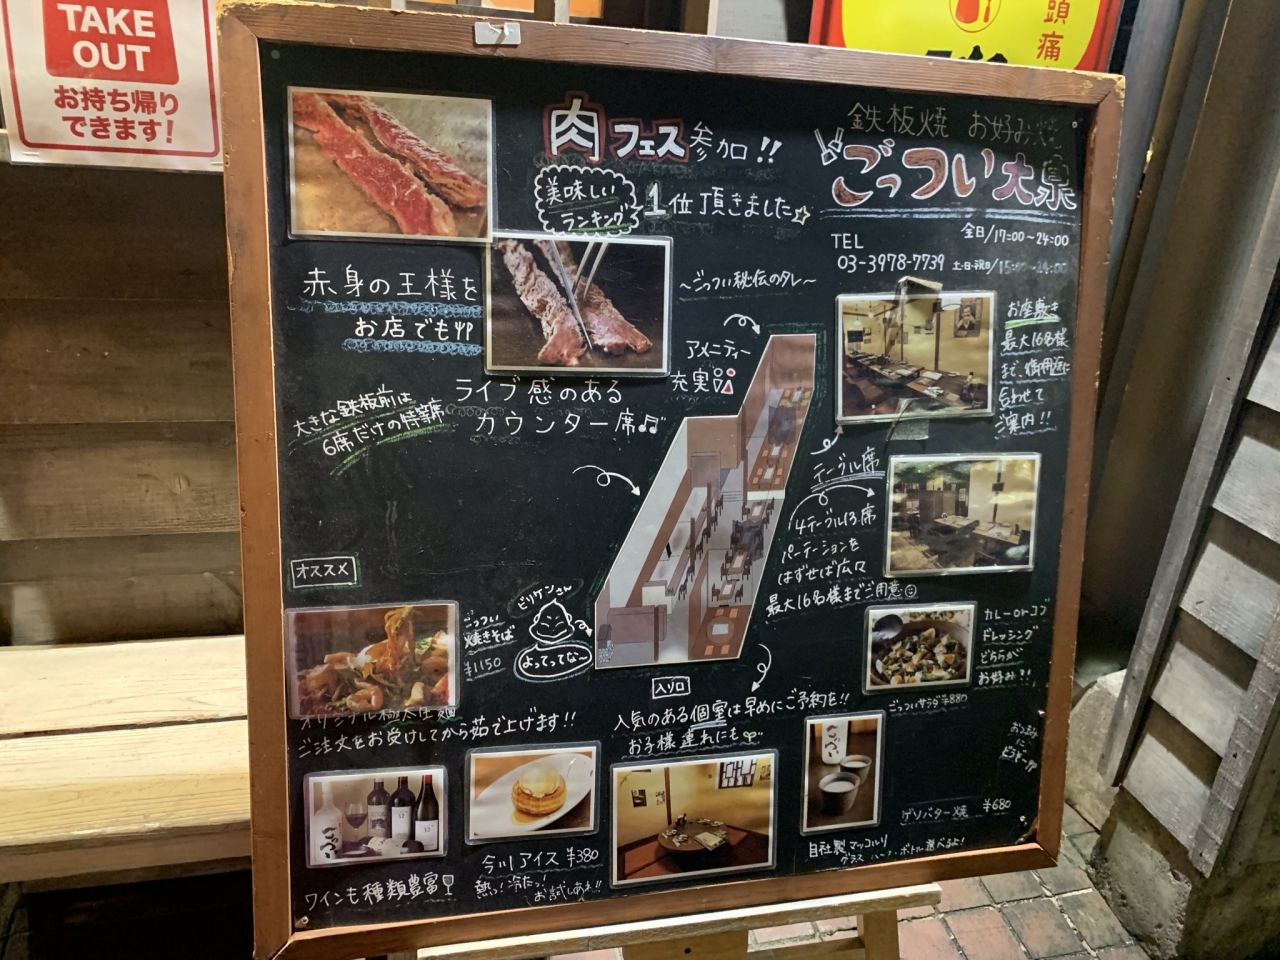 TAKE
OUT
お持ち帰り
できます!
頭痛
肉フェス参加!!
美味しい
ランキング
1位頂きました☆
鉄板焼 お好み焼
ごっつい大泉
全日/17:00~24:00
TEL
03-3978-7739
土・日・祝日/15:00~24:00
赤身の王様を
お店でも!!
~ごっつい秘伝のタレ~
アメニティー
充実
お座敷き
最大16名様
まで、御用途に
合わせて
ご案内!!
ライブ感のある
カウンター席♫
大きな鉄板前は
6席だけの特等席
テーブル席
4テーブル13席
パーテーションを
はずせば広々
最大16名様までご用意☺
オススメ
ごっつい
焼きそば
¥1150
ビリケンさん
よってってな~
入り口
オリジナル極太生麺
ご注文をお受けしてから茹で上げます!!
人気のある個室は早めにご予約を!!
お子様連れにも
カレーorトコブ
ドレッシング
どちらが
お好み?!
ごっついサラダ¥880
ごっつい
ゲソバター焼 ¥680
自社製マッコルリ
グラス ハーフ・ボトル選べるよ!
今川アイス ¥380
熱っ!冷たっ!
お試しあれ!!
ワインも種類豊富